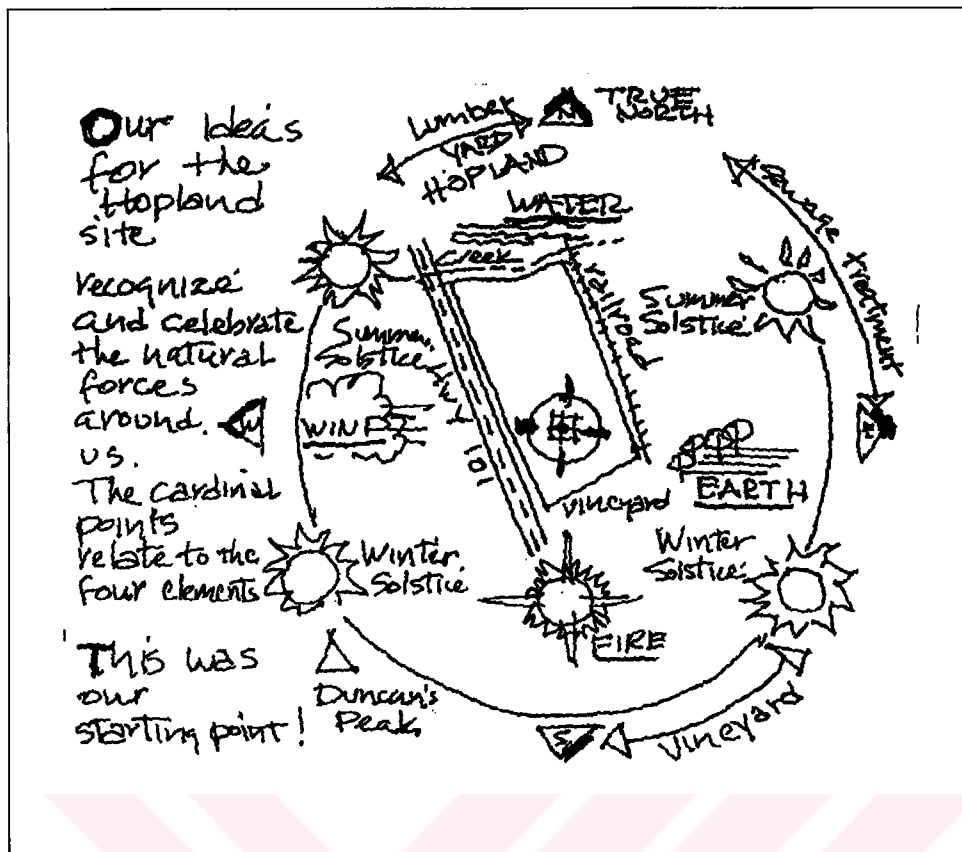 Our Ideas
for the
Hopland
site
recognize
and celebrate
the natural
forces
around
us.
The cardinal
points
relate to the
four elements
This was
our
starting point!
Lumber
YARD
HOPLAND
N
TRUE
NORTH
WATER
Creek
railroad
Sewage treatment
Summer
Solstice
Summer
Solstice
HWY 101
W
WIND
EARTH
vineyard
Winter
Solstice
Winter
Solstice
FIRE
Duncan's
Peak
S
Vineyard